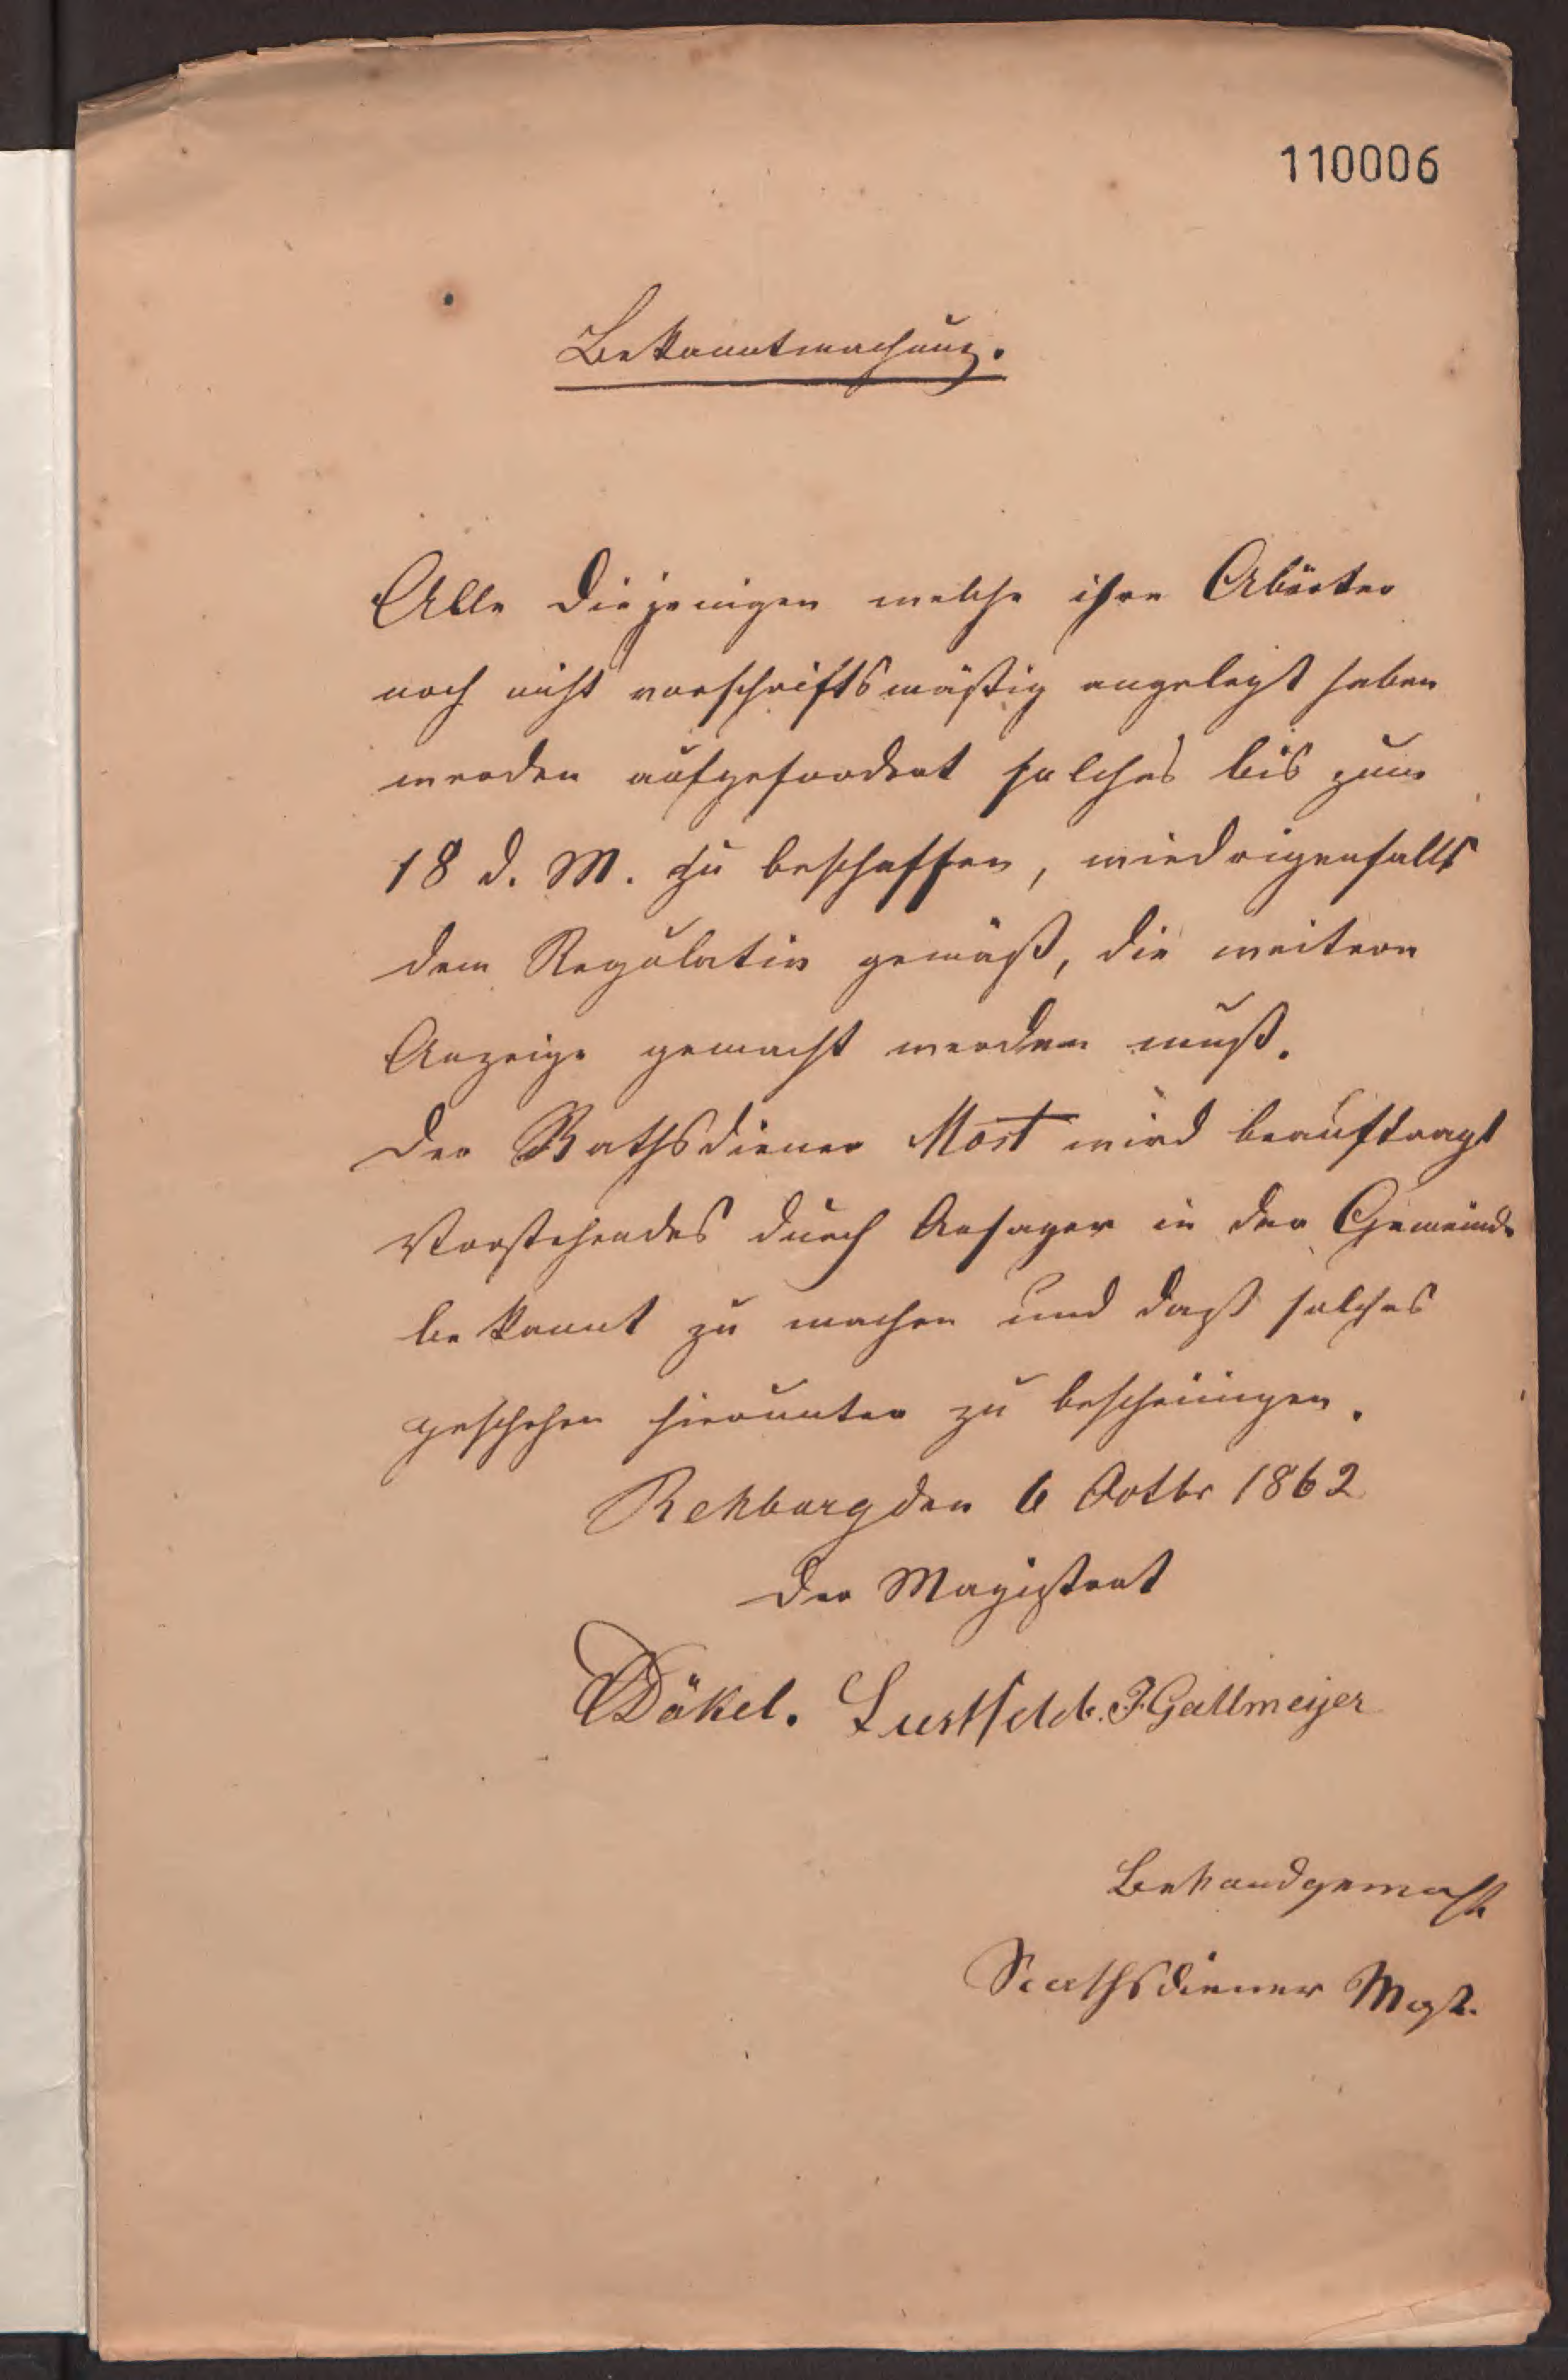 110006
Bekanntmachung.
Alle diejenigen welche ihre Abörter
noch nicht vorschriftsmäßig angelegt haben
werden aufgefordert solches bis zum
18 d. M. zu beschaffen, wiedrigenfalls
dem Regulativ gemäß, die weitere
Anzeige gemacht werden muß.
Der Rathsdiener Most wird beauftragt
Vorstehendes durch Ansager in der Gemeinde
bekannt zu machen und daß solches
geschehen hierunter zu bescheinigen.
Rehburg den 6 Octbr 1862
Der Magistrat
Däkel. Lustfeldt. F. Gallmeijer
Bekandgemacht
Rathsdiener Most.